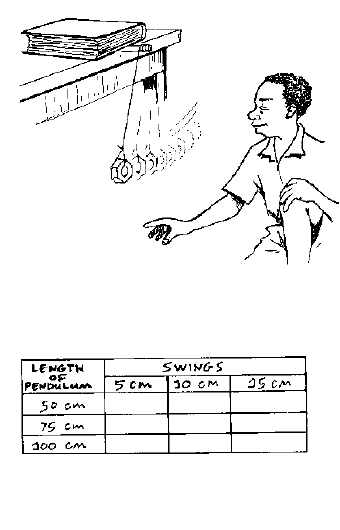 LENGTH OF PENDULUM SWINGS
5 cm 10 cm 15 cm
50 cm
75 cm
100 cm